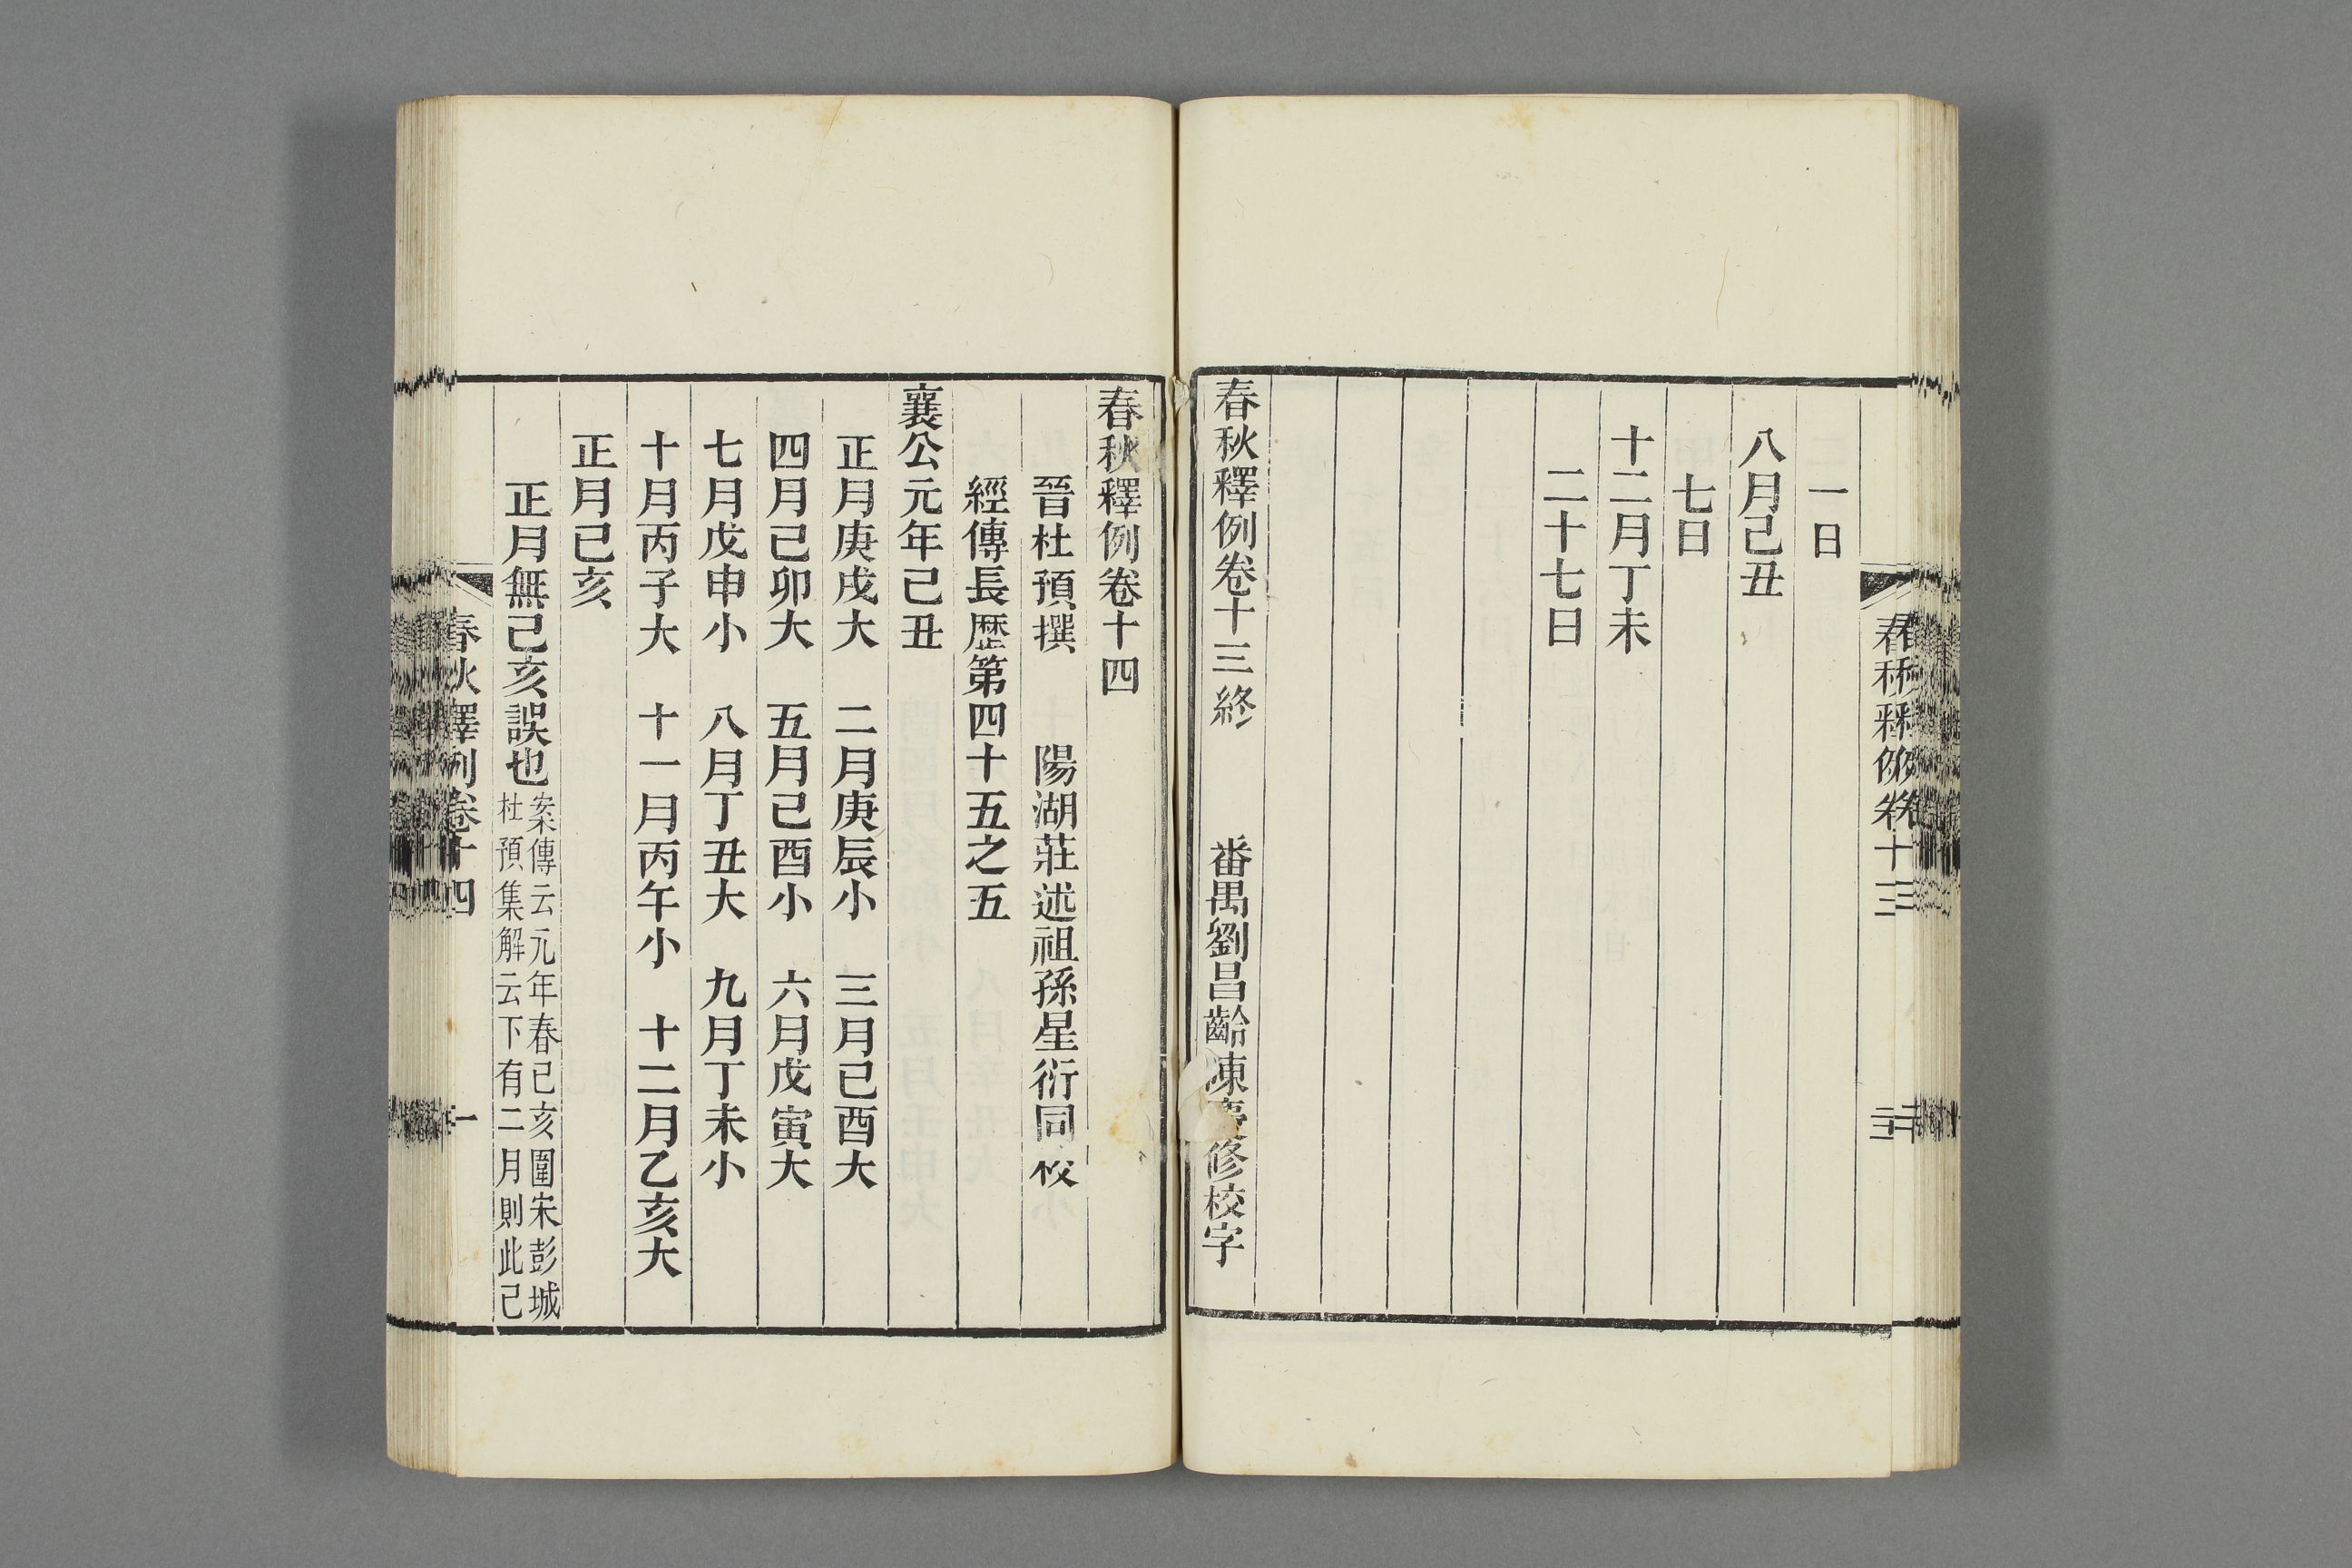 一日
八月己丑
七日
十二月丁未
二十七日
春秋釋例卷十三終　番禺劉昌齡凍修校字
春秋釋例卷十四
晉杜預撰　陽湖莊述祖孫星衍同校
經傳長歷第四十五之五
襄公元年己丑
正月庚戌大　二月庚辰小　三月己酉大
四月己卯大　五月己酉小　六月戊寅大
七月戊申小　八月丁丑大　九月丁未小
十月丙子大　十一月丙午小　十二月乙亥大
正月己亥
正月無己亥誤也
案傳云元年春己亥圍宋彭城
杜預集解云下有二月則此己
春秋釋例卷十四
一